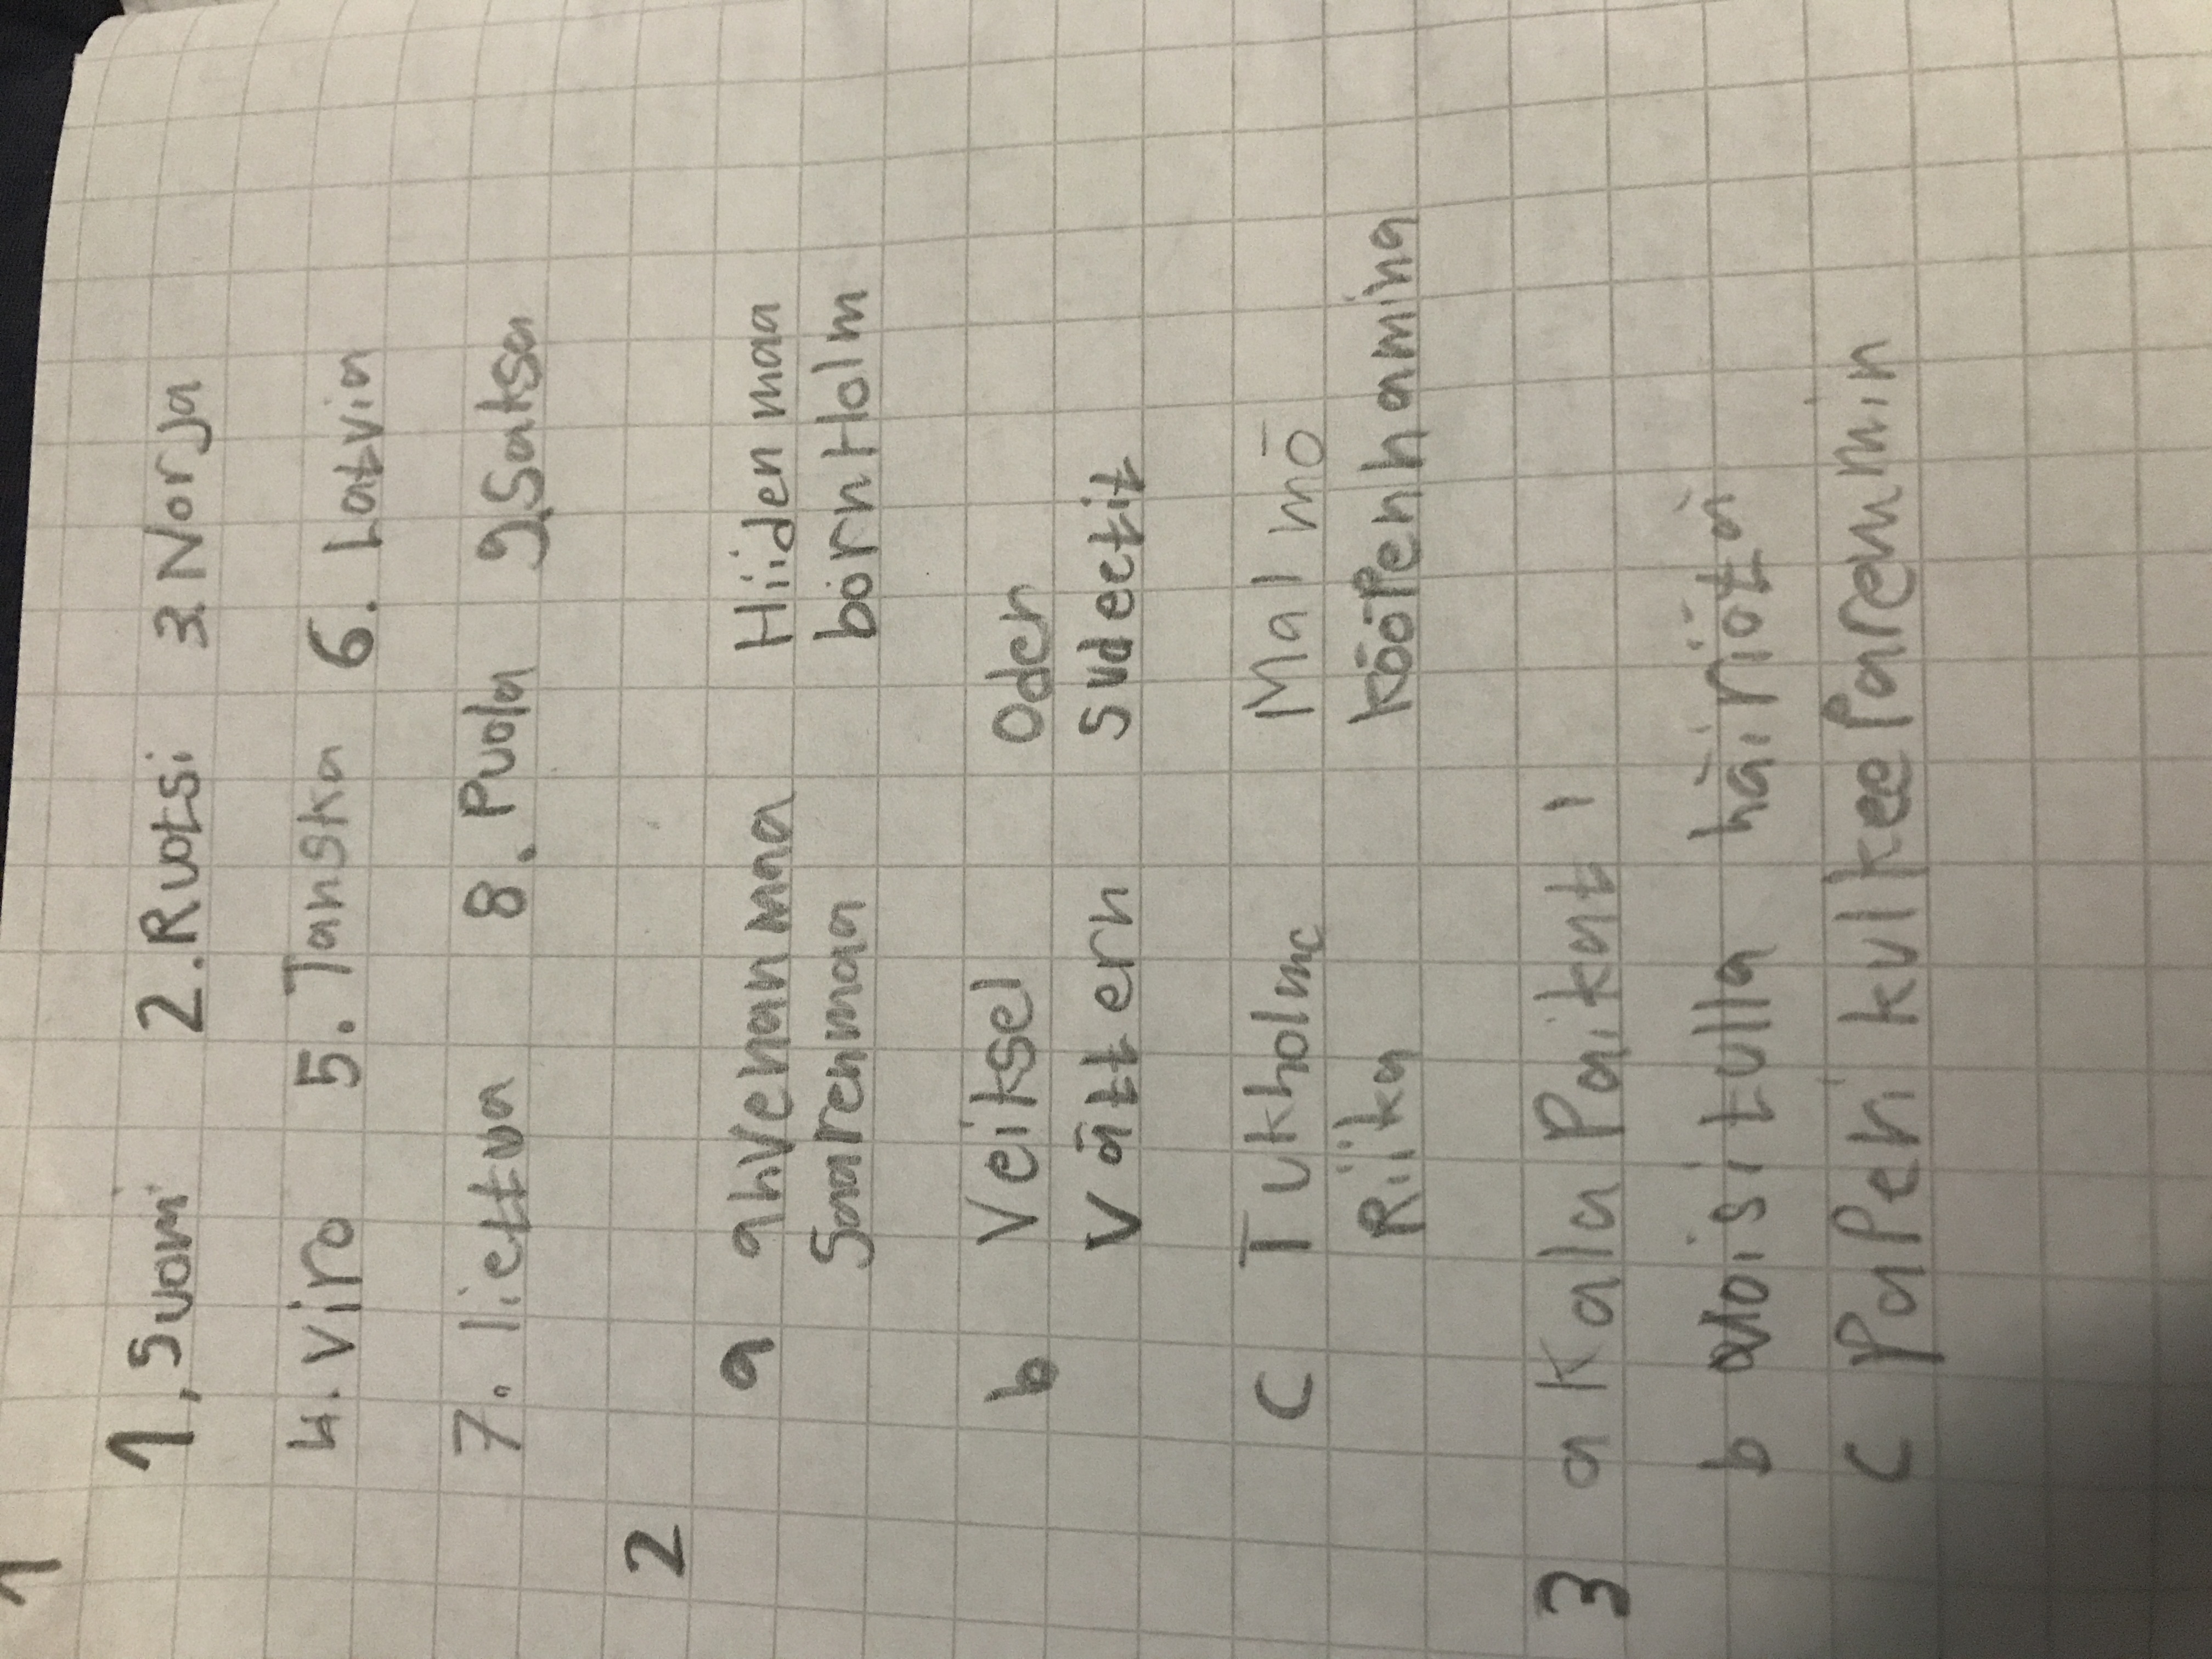 1
1. Suomi 2. Ruotsi 3. Norja
4. viro 5. Tanska 6. Latvia
7. liettua 8. Puola 9. Saksa
2
a ahvenanmaa Hiidenmaa
Saarenmaa börnHolm
b Veiksel Oder
Vättern Sudeetit
C Tukholma Malmö
Riika kööpenhamina
3 a Kala Paikat 1
b voisi tulla häiriötä
C PaPeri kulkee Paremmin